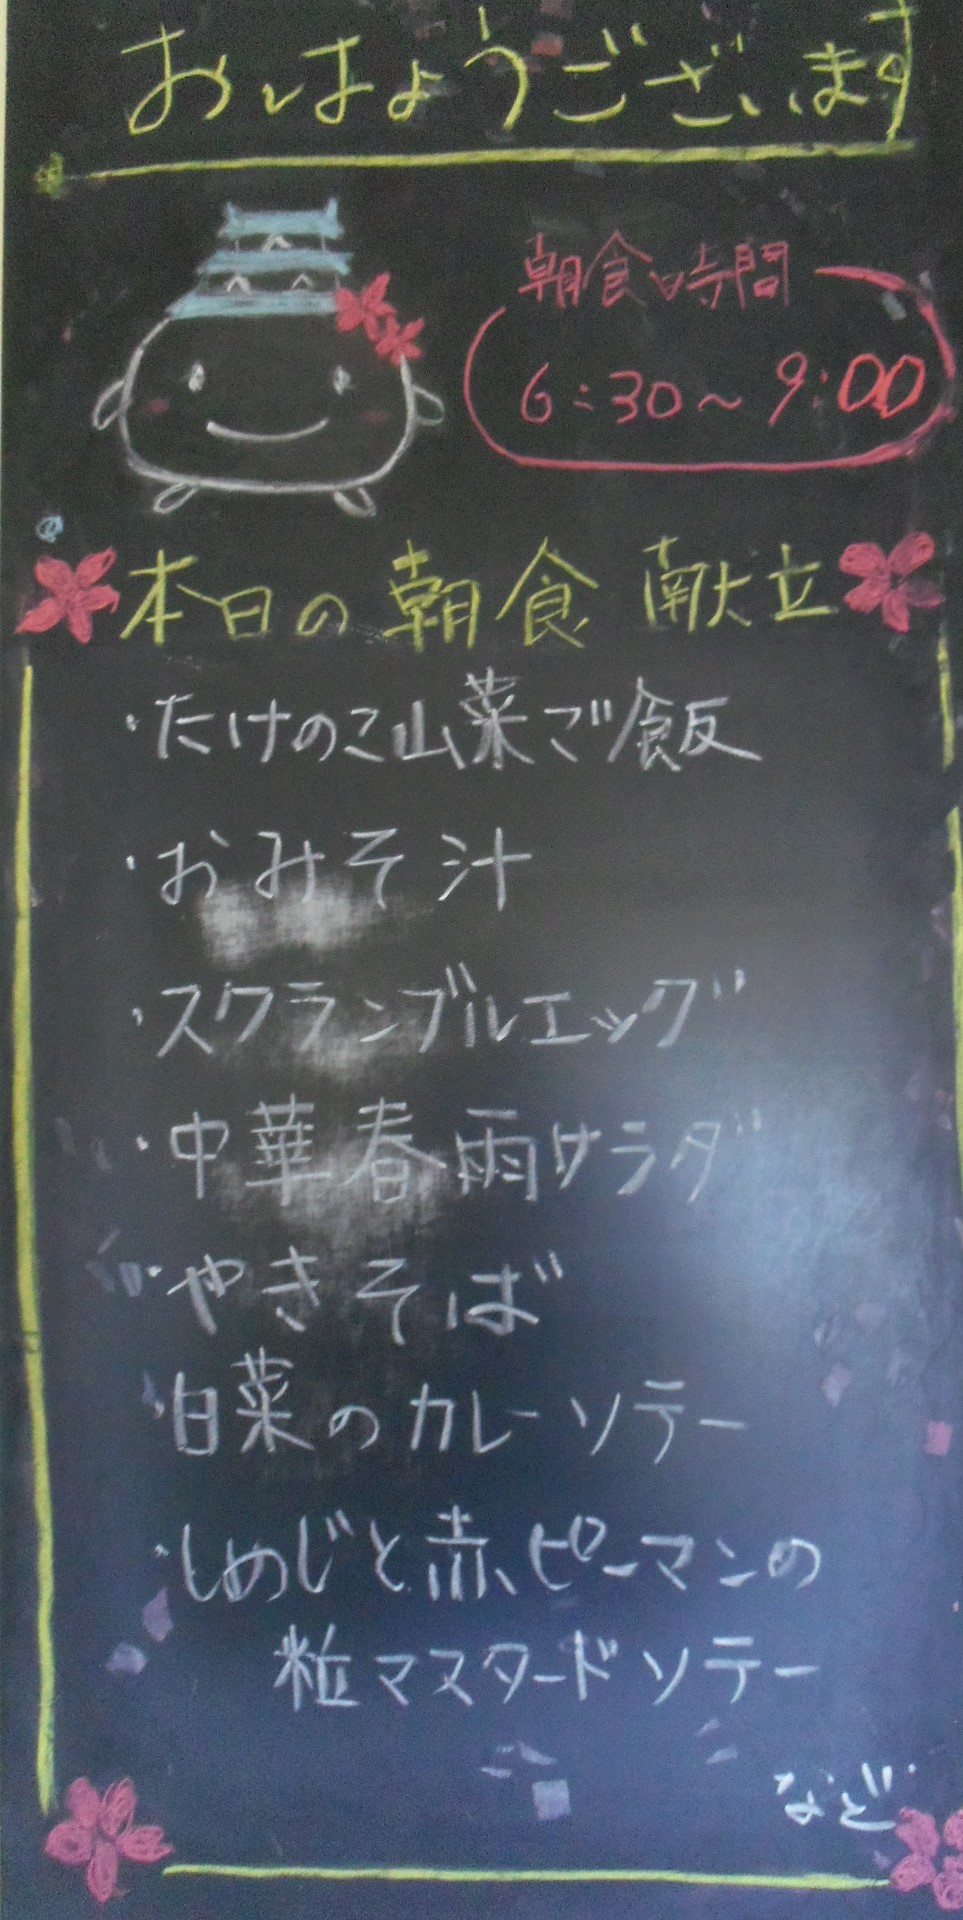 おはようございます
朝食時間
6:30～9:00
本日の朝食 献立
・たけのこ山菜ご飯
・おみそ汁
・スクランブルエッグ
・中華春雨サラダ
・やきそば
・白菜のカレーソテー
・しめじと赤ピーマンの
粒マスタードソテー
など